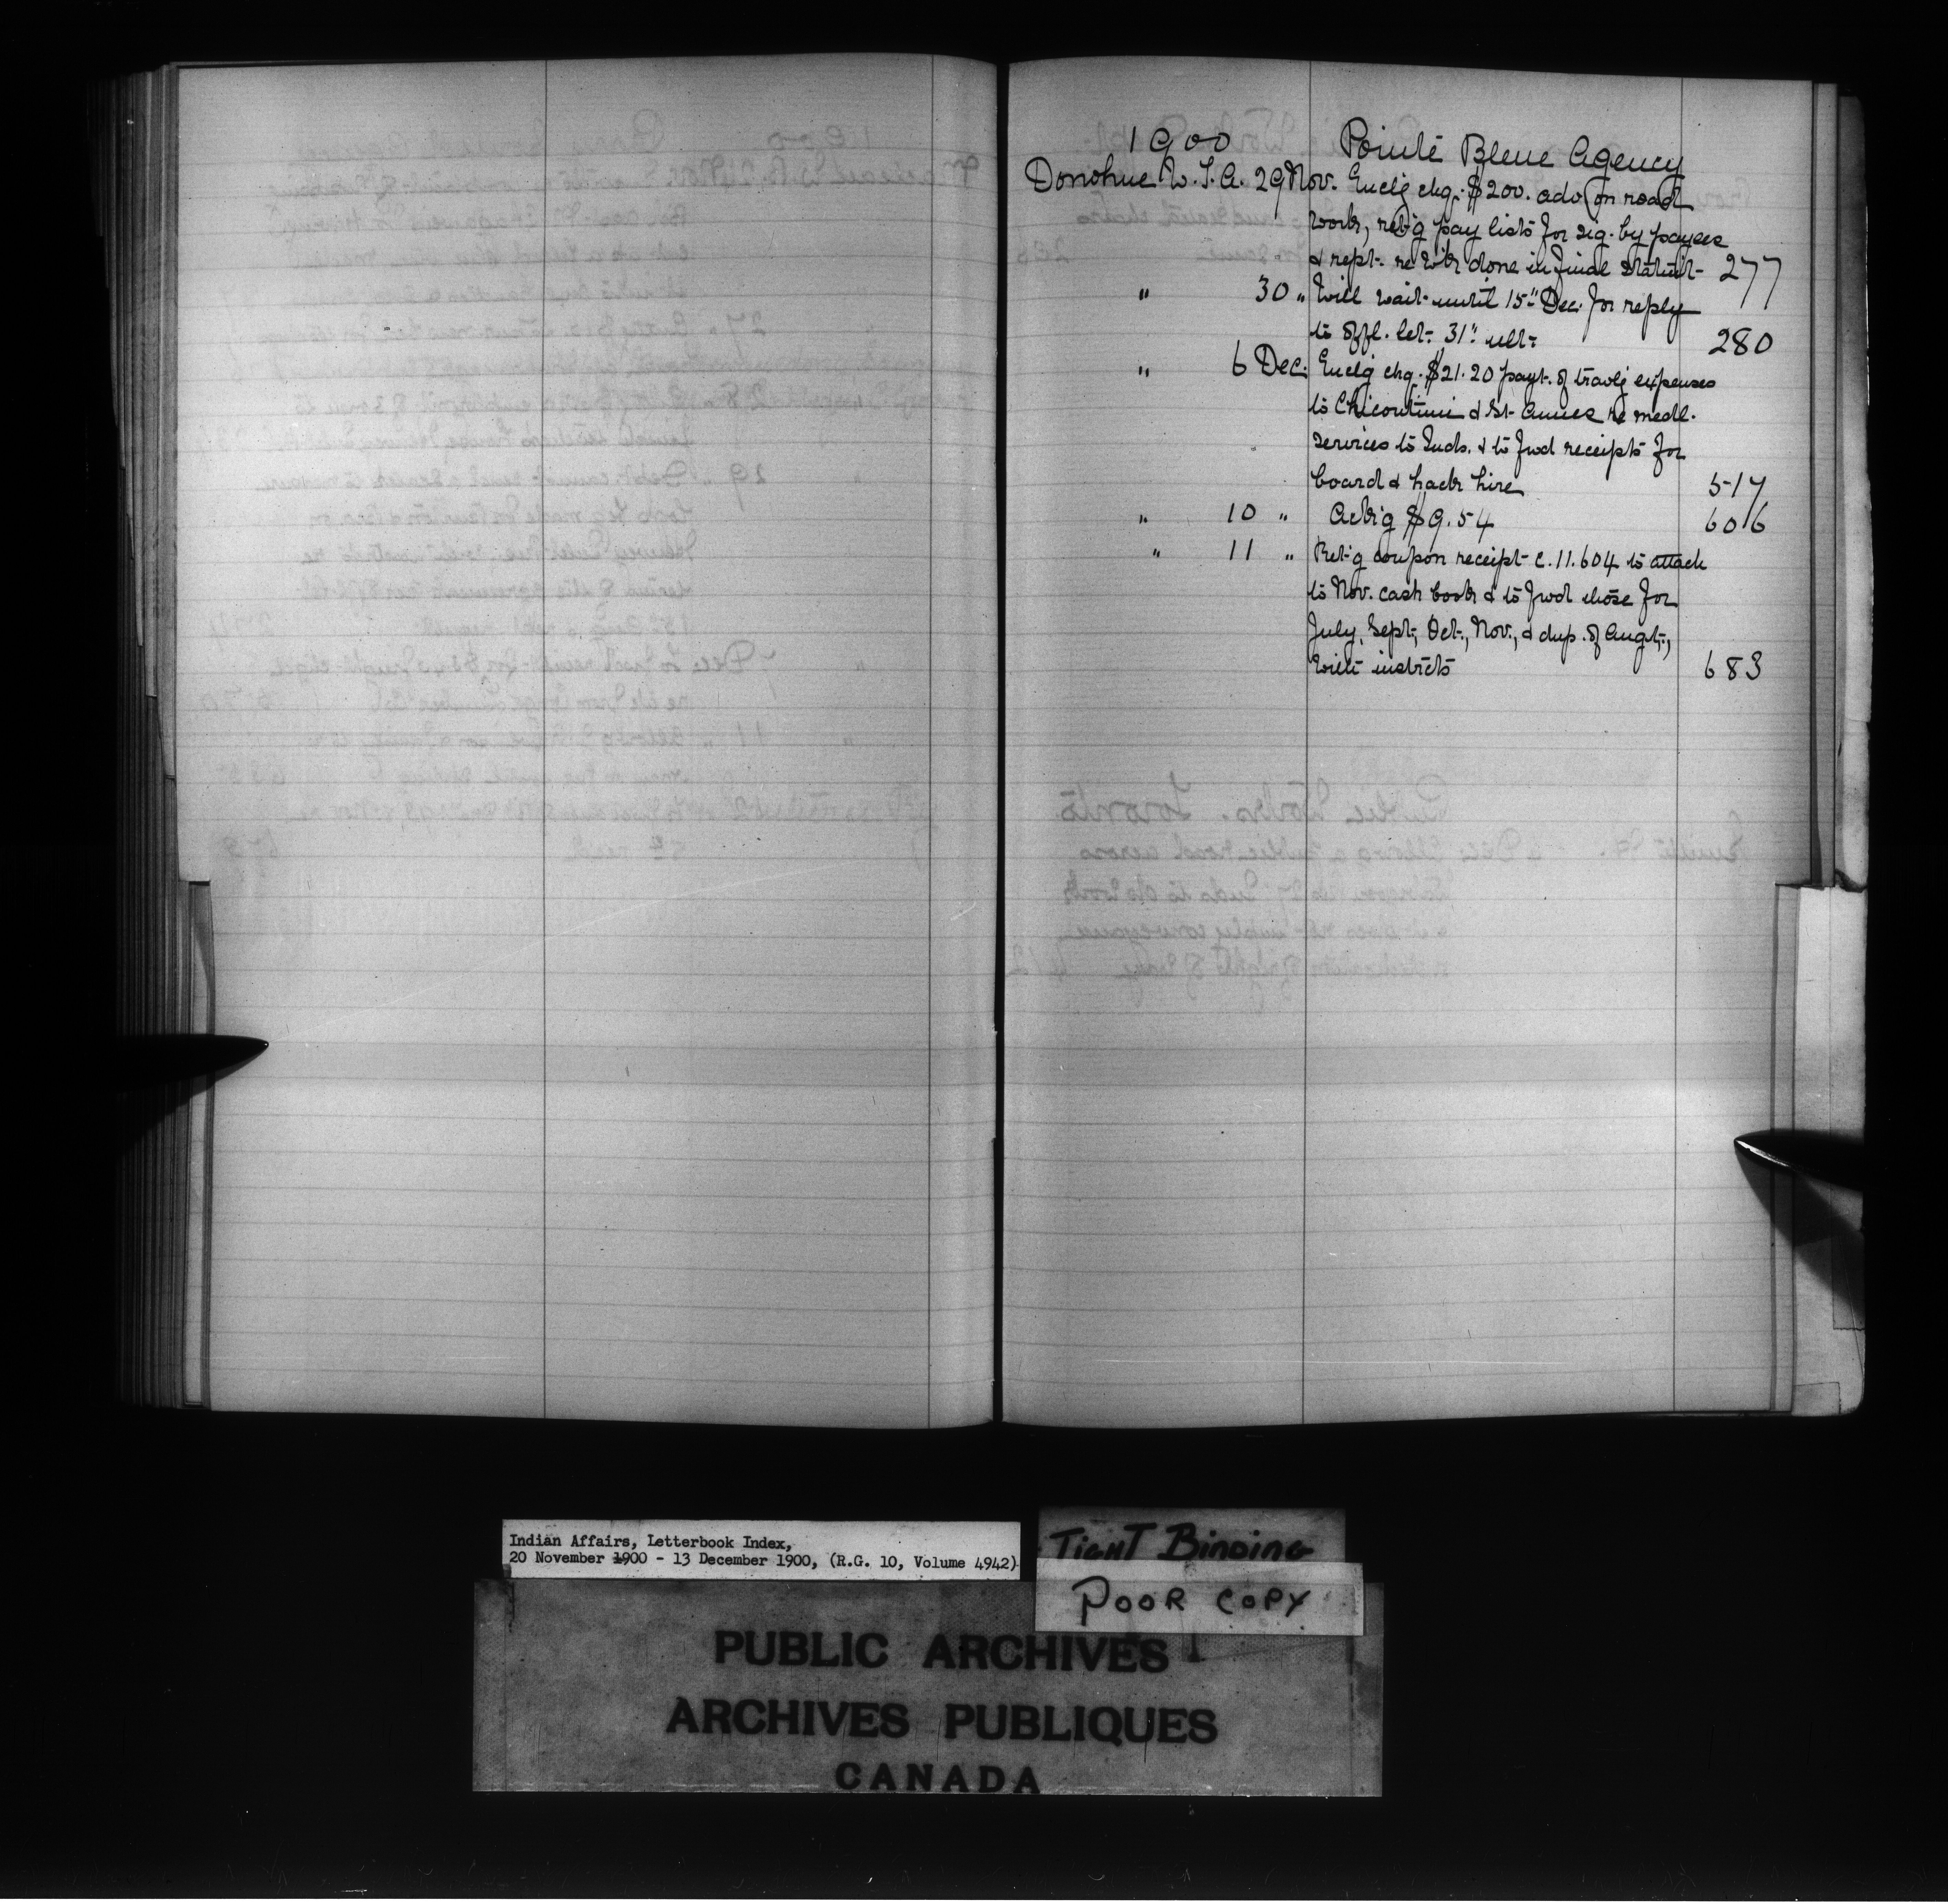 1900 Pointe Bleue Agency
Donohue W.T.A. 29 Nov. Enclg chq. $200. adv. on road
work, retg pay lists for sig. by payees
& rept. re wk done in final statmt- 277
" 30 " Will wait until 15" Dec. for reply
to offl. let. 31" ult- 280
" 6 Dec. Enclg chq. $21.20 payt. of travlg expenses
to Chicoutimi & St- Annes re medl.
services to Inds. & to fwd receipts for
board & hack hire 517
" 10 " Ackg $9.54 606
" 11 " Retg coupon receipt C.11.604 to attach
to Nov. cash book & to fwd those for
July, Sept-, Oct-, Nov., & dup. of Augt-,
with instrcts 683
Indian Affairs, Letterbook Index,
20 November 1900 - 13 December 1900, (R.G. 10, Volume 4942)
TIGHT BINDING
POOR COPY
PUBLIC ARCHIVES
ARCHIVES PUBLIQUES
CANADA